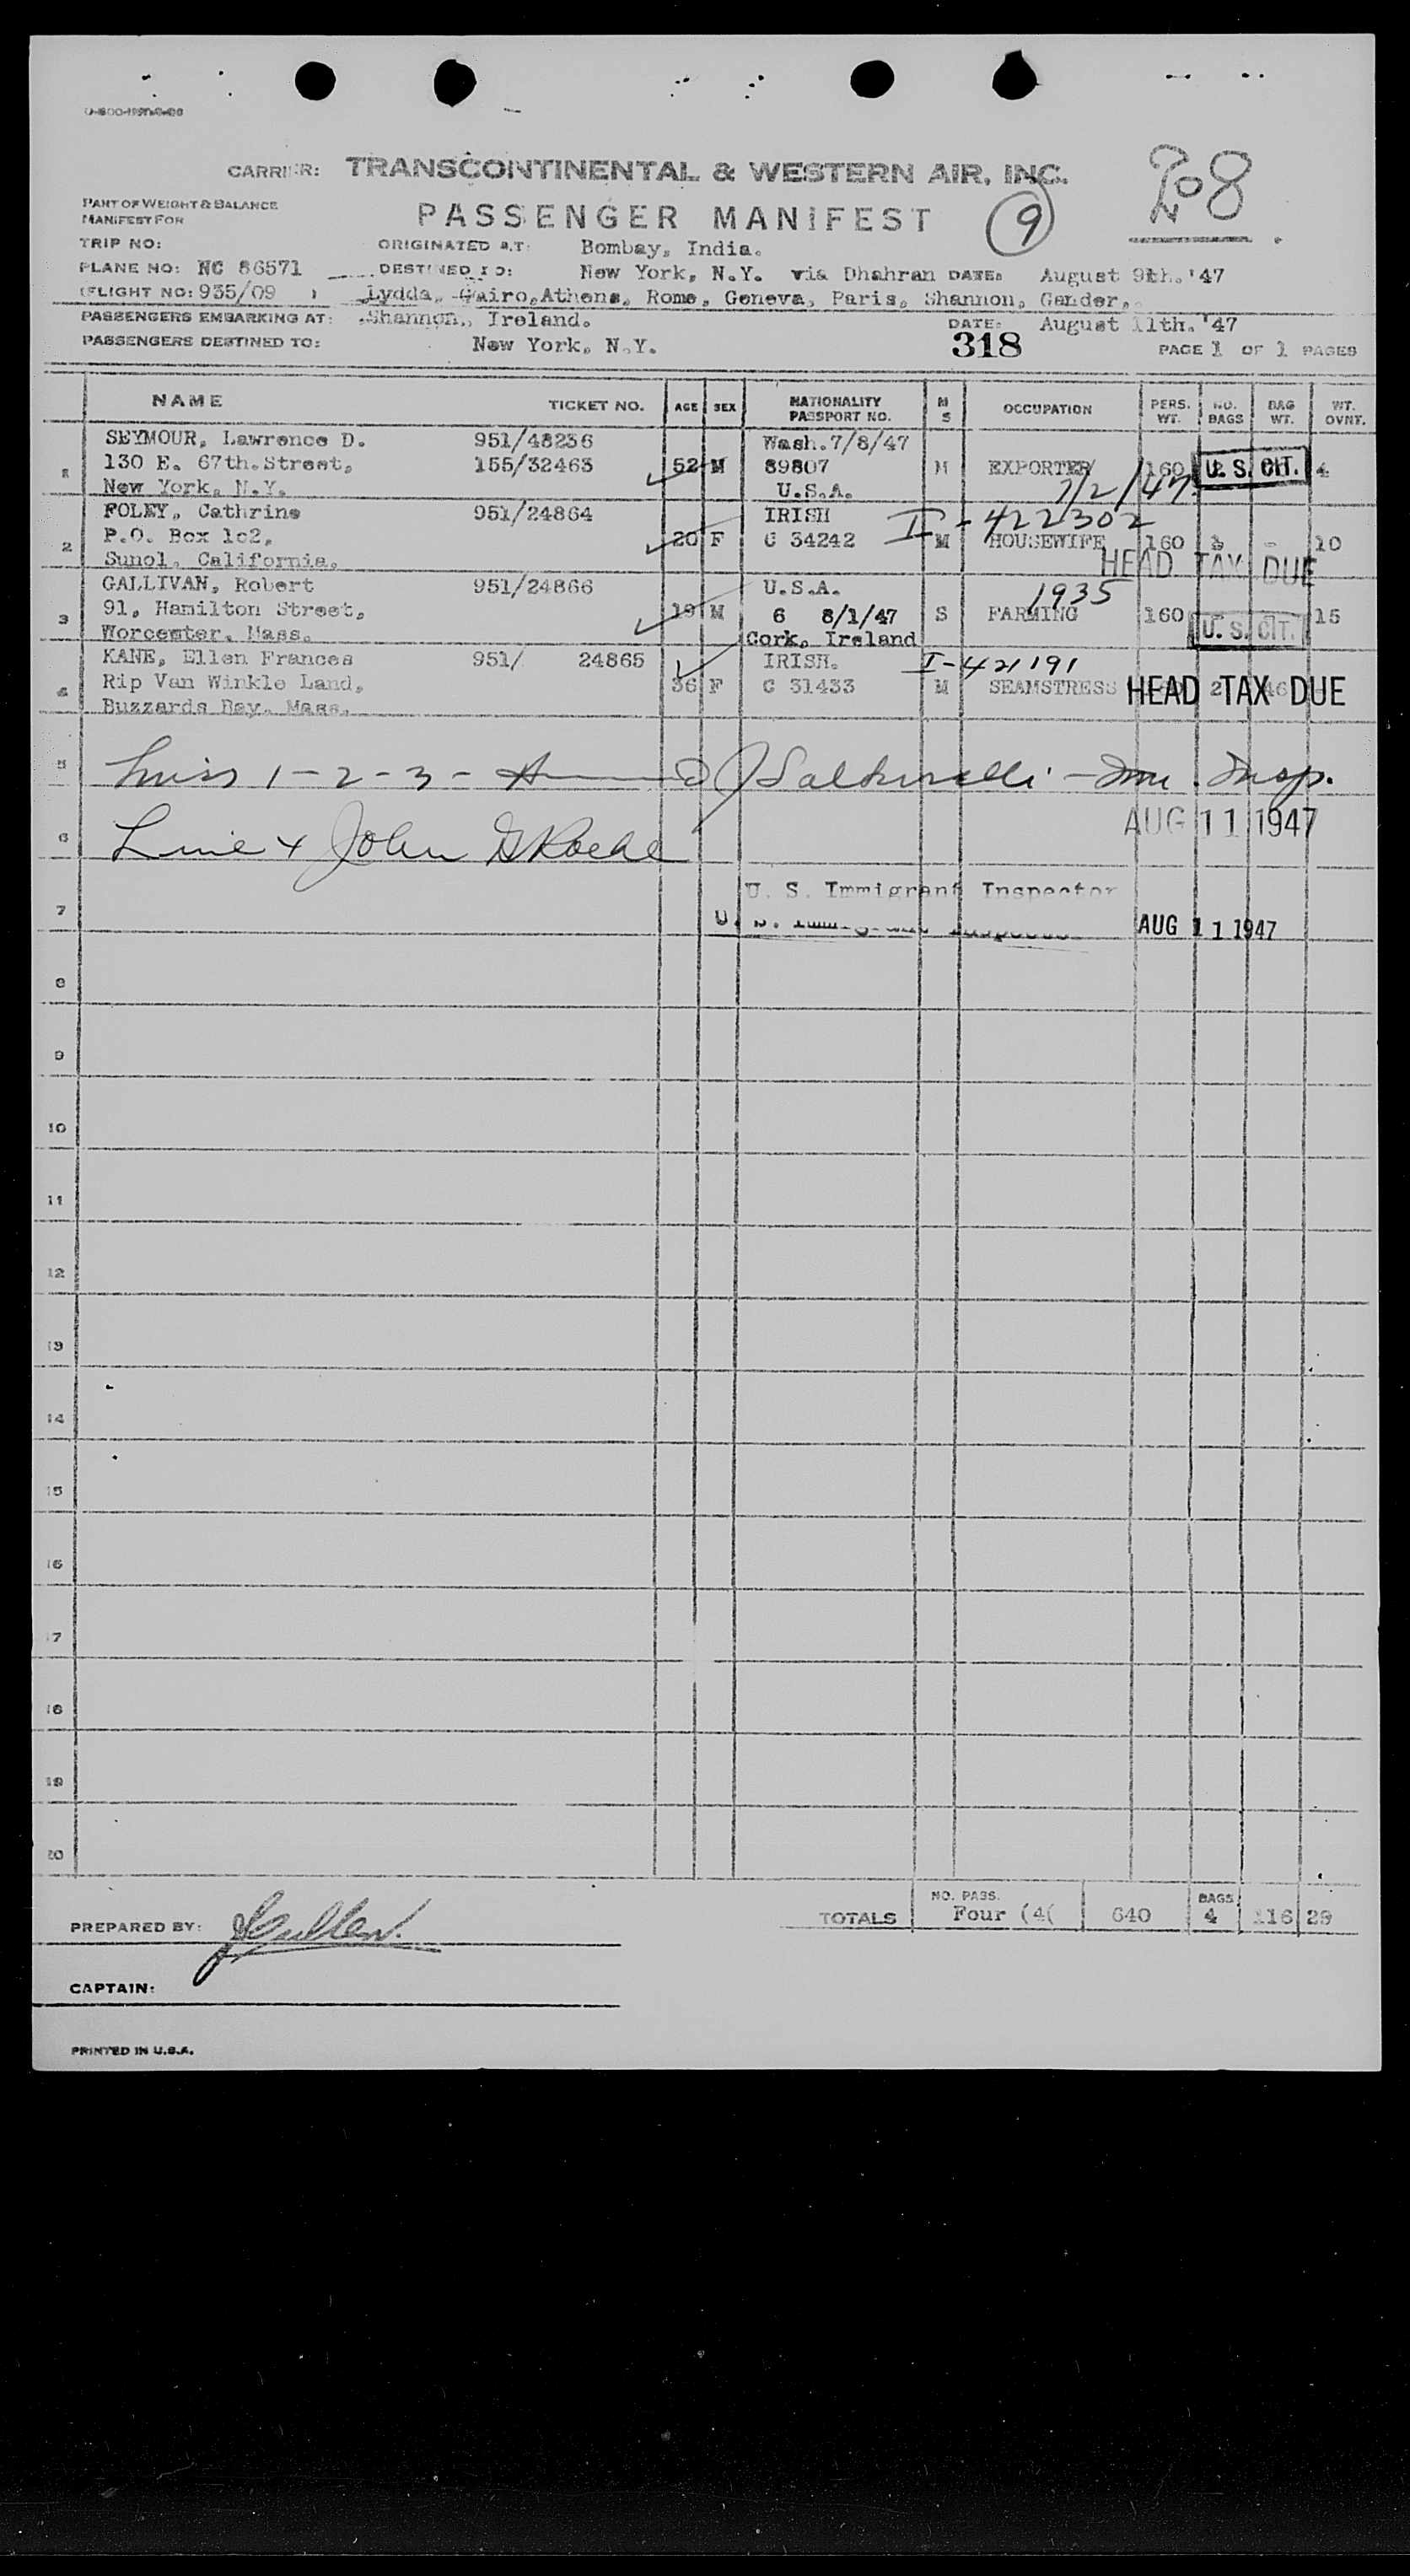 CARRIER: TRANSCONTINENTAL & WESTERN AIR, INC.
208
PART OF WEIGHT & BALANCE
MANIFEST FOR
PASSENGER MANIFEST
9
TRIP NO:
ORIGINATED AT: Bombay, India.
PLANE NO: NC 86571
DESTINED TO: New York, N.Y. via Dhahran DATE: August 9th.'47
(FLIGHT NO: 935/09 )
Lydda, Cairo, Athens, Rome, Geneva, Paris, Shannon, Gander,
PASSENGERS EMBARKING AT: Shannon, Ireland.
DATE: August 11th.'47
PASSENGERS DESTINED TO: New York, N.Y.
318
PAGE 1 OF 1 PAGES
NAME TICKET NO. AGE SEX NATIONALITY PASSPORT NO. M S OCCUPATION PERS. WT. NO. BAGS BAG WT. WT. OVNT.
SEYMOUR, Lawrence D. 951/48236 Wash.7/8/47
1 130 E. 67th.Street, 155/32463 52 M 89807 M EXPORTER 160 U. S. CIT. 4
New York, N.Y. U.S.A. 7/2/47
FOLEY, Cathrine 951/24864 IRISH I-422302
2 P.O. Box 1c2, 20 F C 34242 M HOUSEWIFE 160 - 10
Sunol, California. HEAD TAX DUE
GALLIVAN, Robert 951/24866 U.S.A. 1935
3 91, Hamilton Street, 19 M 6 8/1/47 S FARMING 160 15
Worcester, Mass. Cork, Ireland U. S. CIT.
KANE, Ellen Frances 951/ 24865 IRISH. I-421191
4 Rip Van Winkle Land, 36 F C 31433 M SEAMSTRESS 2 46 HEAD TAX DUE
Buzzards Bay, Mass.
5 1-2-3- Imm. Insp.
AUG 11 1947
6 Line 4 John Roche
U. S. Immigrant Inspector
7 U. S. Immigrant Inspector AUG 11 1947
8
9
10
11
12
13
14
15
16
17
18
19
20
NO. PASS. BAGS
TOTALS Four (4( 640 4 116 29
PREPARED BY:
CAPTAIN:
PRINTED IN U.S.A.